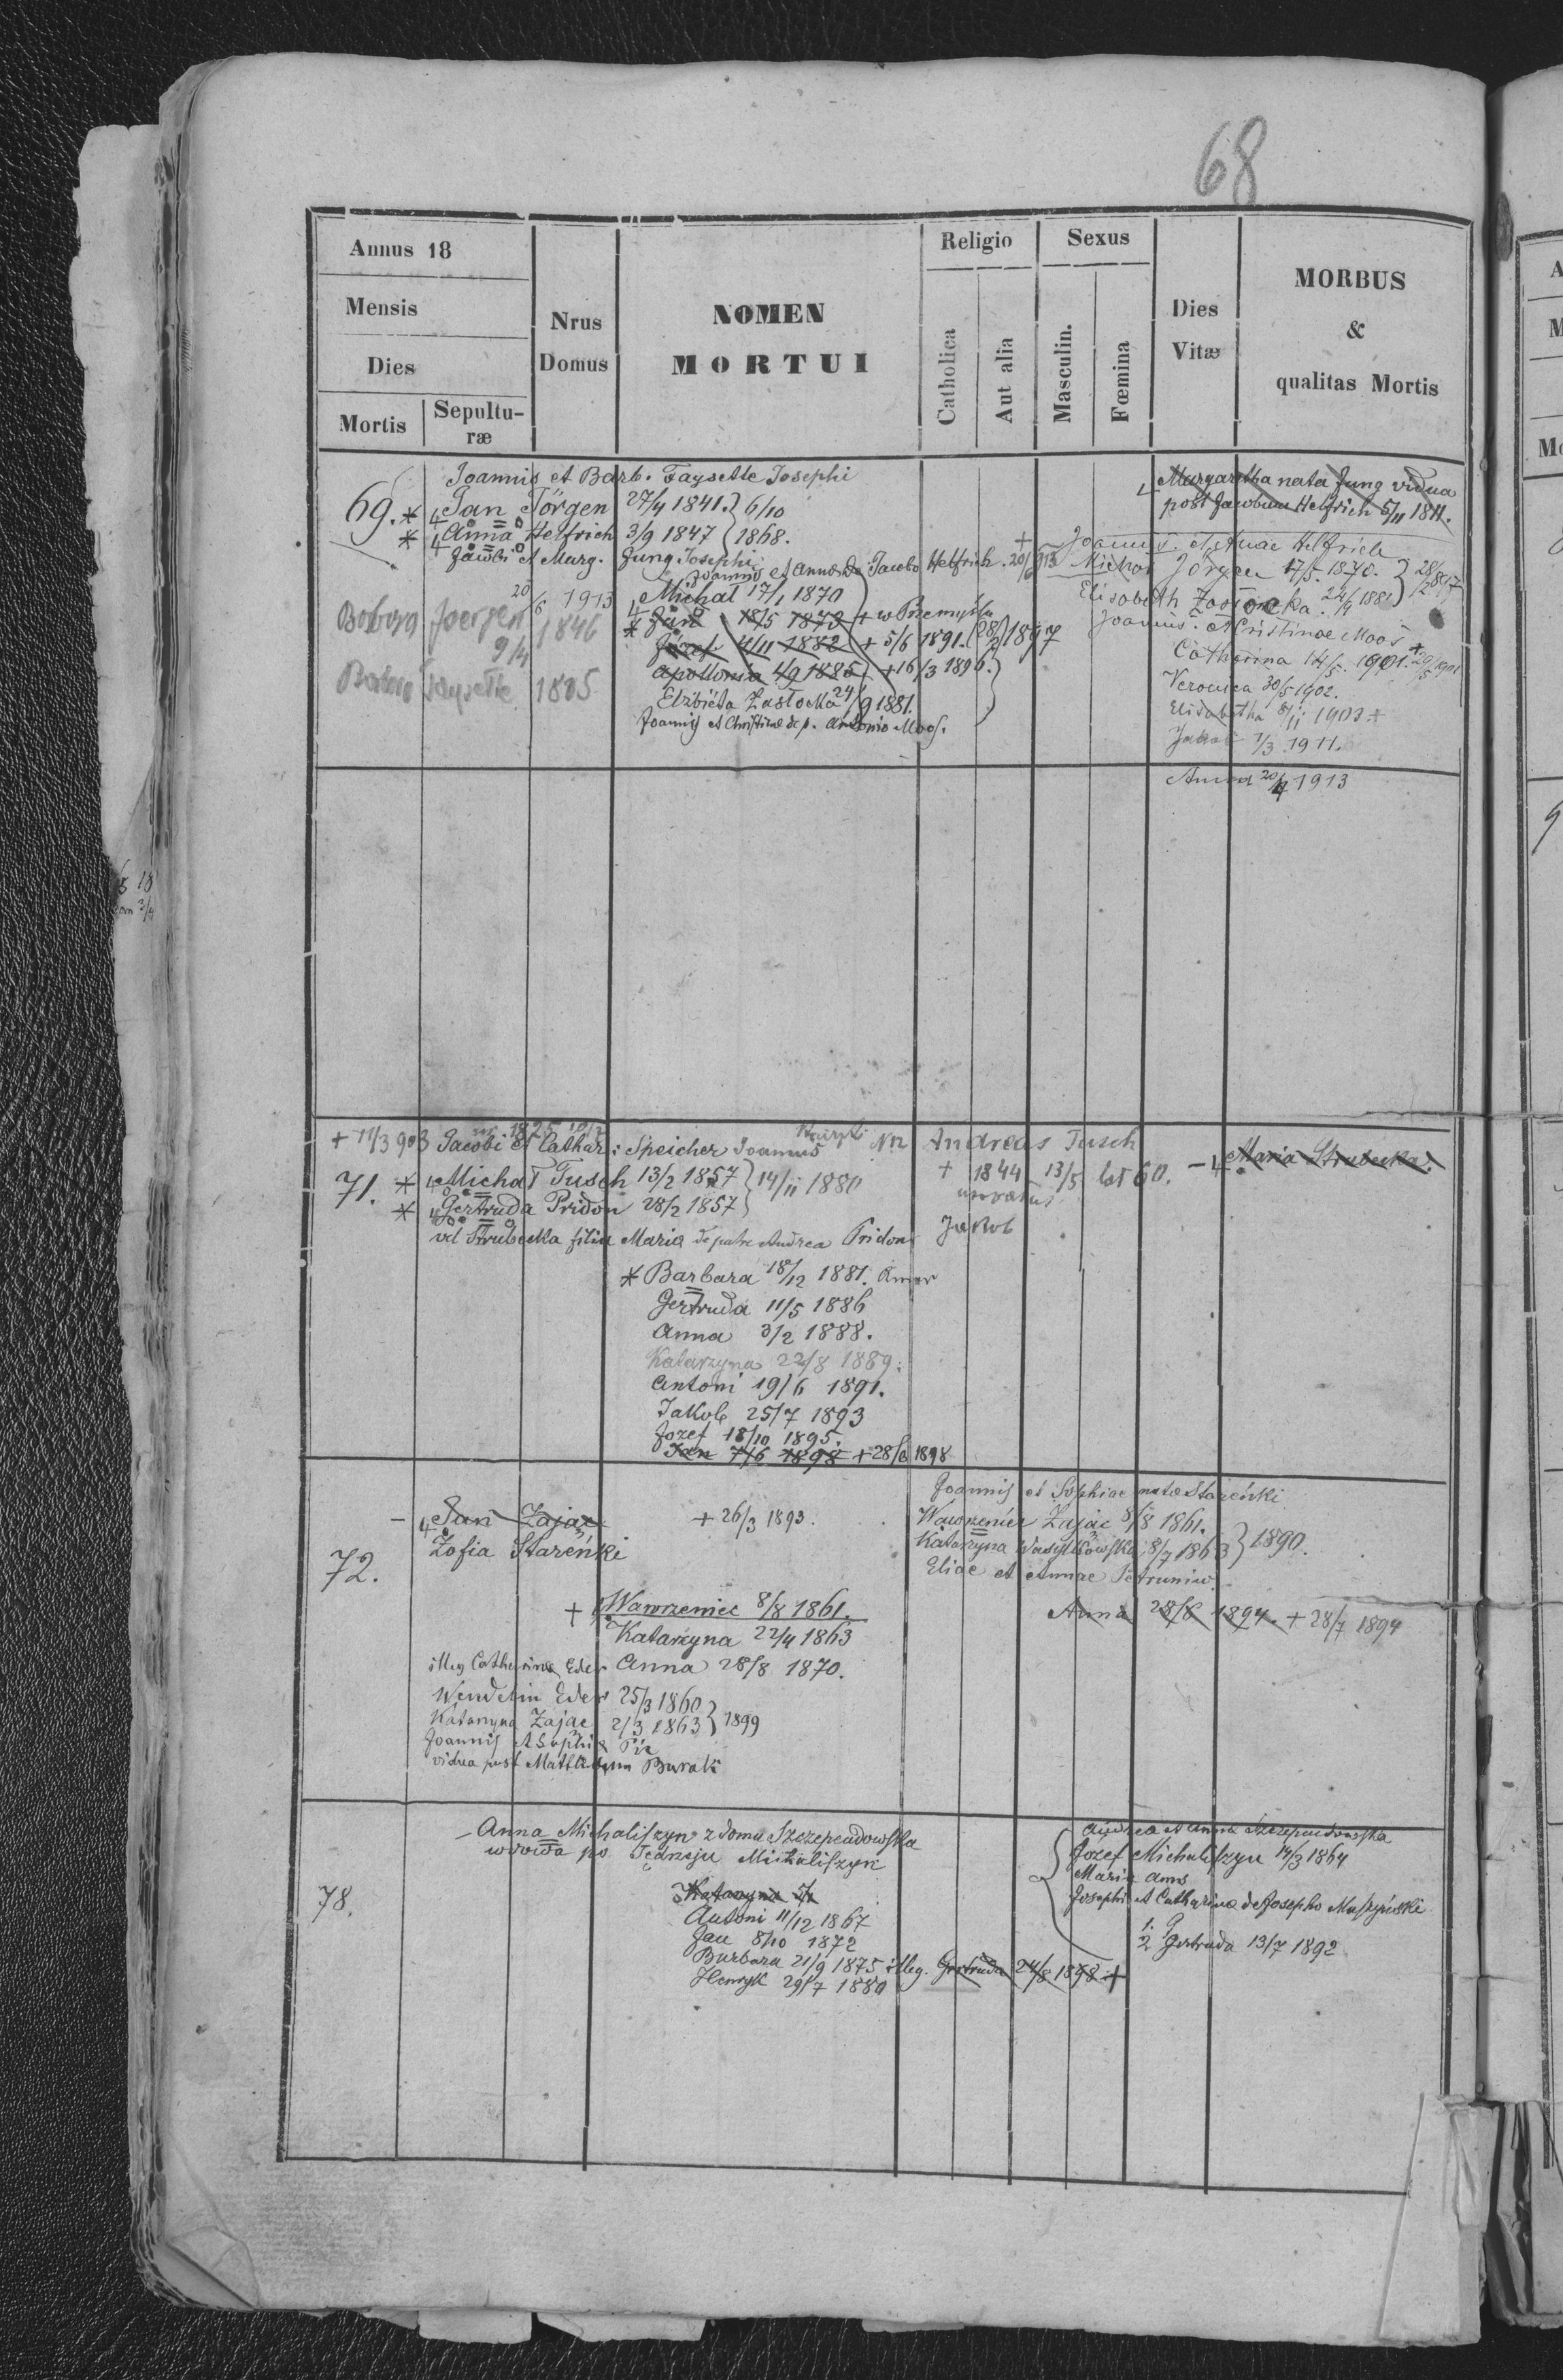 68
Annus 18
Mensis
Dies
Mortis
Sepulturæ
Nrus Domus
NOMEN
MORTUI
Religio
Catholica
Aut alia
Sexus
Masculin.
Fœmina
Dies Vitæ
MORBUS
&
qualitas Mortis
Joannis et Barb. Faysette Josephi
69. * Jan Jörgen 27/4 1841. } 6/10
* Anna Helfrich 3/9 1847 } 1868.
Jacobi et Marg. Jung Josephi
Joannis et Annae de Jacobo Helfrich
+ 20/6 913
20/6 1913
Joergen 1846
9/4
Faysette 1805
Michał 17/1 1870
* Jan 18/5 1879 + w Przemyślu
Józef 4/11 1882 + 5/6 1891.
28/2 1897
Apollonia 4/9 1885 + 16/3 1896.
Elżbieta Zasłocka 24/9 1881.
Joannis et Christinae de p. Antonio Moos.
Margaretha nata Jung vidua
post Jacobum Helfrich 5/11 1811.
Joannis et Annae Helfrich
Michał Jörgen 17/5 1870. } 28/2 897
Elisabeth Zasłocka 24/9 1881
Joannis et Cristinae Moos
Catharina 14/5 1901. + 29/5 1901
Veronica 30/5 1902.
Elisabetha 8/11 1903 +
Jakób 7/3 1911.
Anna 20/4 1913
+ 11/3 903 Jacobi et Cathar: Speicher Joannis
71. * Michał Tusch 13/2 1857 } 14/11 1880
* Gertruda Pridon 28/2 1857
vel Strubecka filia Maria de patre Andrea Pridon
Andreas Tusch
+ 1844 13/5 lat 60.
uxoratus
Jakob
- Maria Strubecka.
* Barbara 18/12 1881.
Gertruda 11/5 1886
Anna 3/2 1888.
Katarzyna 22/8 1889.
Antoni 19/6 1891.
Jakob 25/7 1893
Jozef 18/10 1895.
Jan 7/6 1898 + 28/6 1898
- Jan Zając + 26/3 1893.
Zofia Stareńki
72.
Joannis et Sophiae nata Stareńki
Wawrzeniec Zając 8/8 1861. } 1890.
Katarzyna Wasylkowska 8/7 1863
Eliae et Annae Petruniw.
+ Wawrzeniec 8/8 1861.
Katarzyna 22/4 1863
illeg Catharinae Eder Anna 28/8 1870.
Anna 28/8 1894. + 28/7 1894
Wendelin Eder 25/3 1860 } 1899
Katarzyna Zając 2/3 1863
Joannis et Sophia
vidua post Matthaeum Burak
- Anna Michaliszyn z domu Szczependowska
wdowa po Michaliszyn
78.
Katarzyna
Antoni 11/12 1867
Jan 8/10 1872
Barbara 21/9 1875 illeg. Gertruda 24/8 1898 +
Henryk 29/7 1880
Andrea et Anna Szczependowska
Jozef Michaliszyn 14/3 1864
Maria
Josephi et Catharinae de Josepho Muszyński
1.
2 Gertruda 13/7 1892